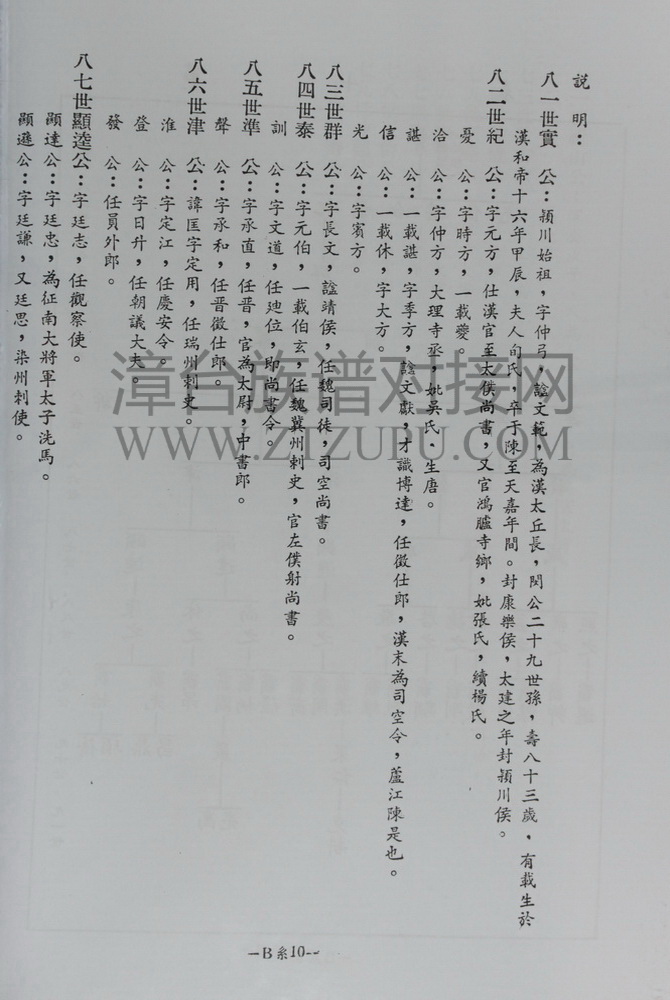 說明：
八一世實　公：潁川始祖，字仲弓，諡文範，為漢太丘長，閔公二十九世孫，壽八十三歲．有載生於
漢和帝十六年甲辰，夫人荀氏，卒于陳至天嘉年間。封康樂侯，太建之年封潁川侯。
八二世紀　公：字元方，仕漢官至太僕尚書，又官鴻臚寺鄉，妣張氏，續楊氏。
憂　公：字時方，一載夔。
洽　公：字仲方，大理寺丞，妣吳氏．生唐。
諶　公：一載諶，字季方，諡文獻，才識博達，任徵仕郎，漢末為司空令，蘆江陳是也。
信　公：一載休，字大方。
光　公：字賓方。
八三世群　公：字長文，諡靖侯，任魏司徒，司空尚書。
八四世泰　公：字元伯，一載伯玄，任魏冀州刺史，官左僕射尚書。
訓　公：字文道，任廸位，即尚書令。
八五世準　公：字承直，任晋，官為太尉，中書郎。
聲　公：字承和，任晋徵仕郎。
八六世津　公：諱匡字定用，任瑞州刺史。
淮　公：字定江，任慶安令。
登　公：字日升，任朝議大夫。
發　公：任員外郎。
八七世顯逵公：字廷志，任觀察使。
顯達公：字廷忠，為征南大將軍太子洗馬。
顯遜公：字廷謙，又廷思，染州刺使。
漳台族谱对接网
WWW.ZTZUPU.COM
—B系10—